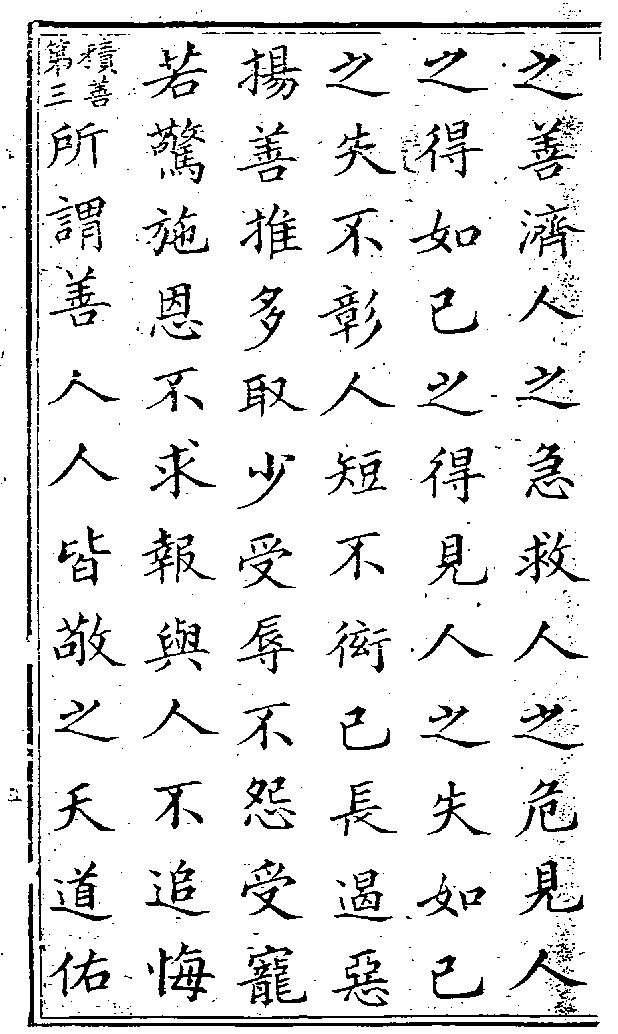 之善濟人之急救人之危見人
之得如己之得見人之失如己
之失不彰人短不衒己長遏惡
揚善推多取少受辱不怨受寵
若驚施恩不求報與人不追悔
積善
第三
所謂善人人皆敬之天道佑